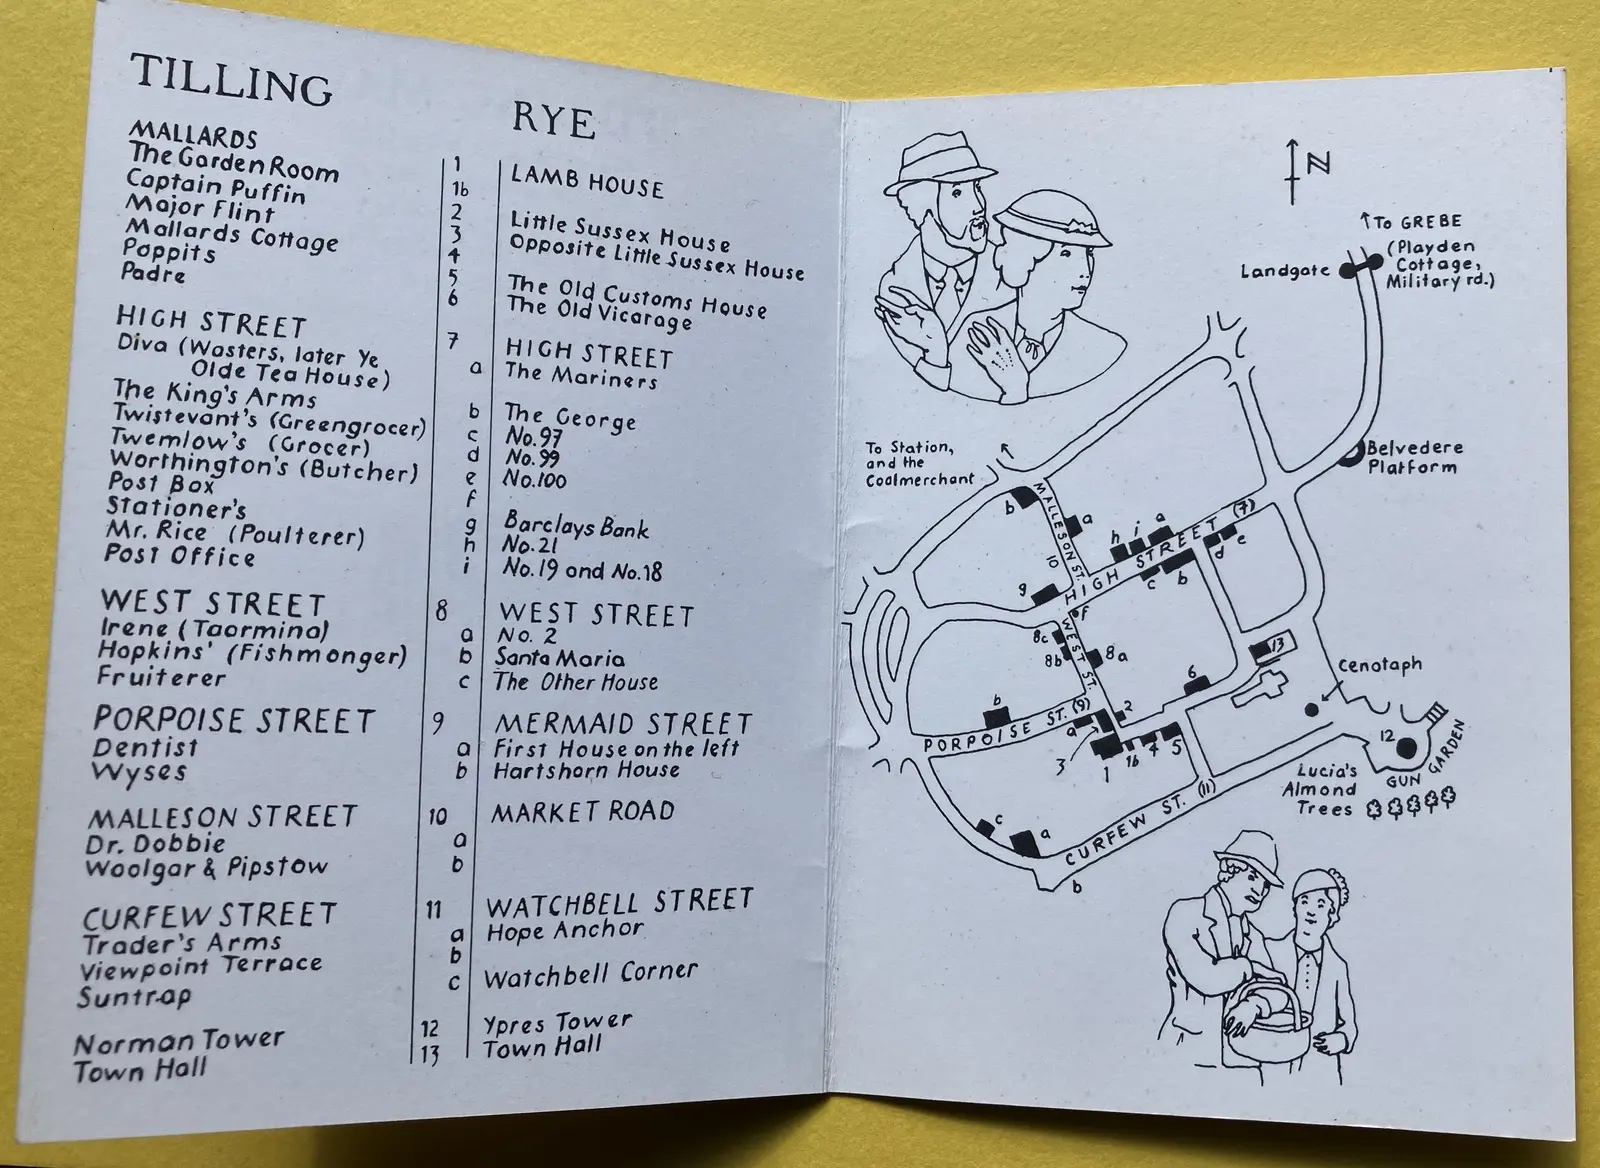 TILLING
MALLARDS
The Garden Room
Captain Puffin
Major Flint
Mallards Cottage
Poppits
Padre
HIGH STREET
Diva (Wasters, later Ye
Olde Tea House)
The King's Arms
Twistevant's (Greengrocer)
Twemlow's (Grocer)
Worthington's (Butcher)
Post Box
Stationer's
Mr. Rice (Poulterer)
Post Office
WEST STREET
Irene (Taormina)
Hopkins' (Fishmonger)
Fruiterer
PORPOISE STREET
Dentist
Wyses
MALLESON STREET
Dr. Dobbie
Woolgar & Pipstow
CURFEW STREET
Trader's Arms
Viewpoint Terrace
Suntrap
Norman Tower
Town Hall
1
1b
2
3
4
5
6
7
a
b
c
d
e
f
g
h
i
8
a
b
c
9
a
b
10
a
b
11
a
b
c
12
13
RYE
LAMB HOUSE
Little Sussex House
Opposite Little Sussex House
The Old Customs House
The Old Vicarage
HIGH STREET
The Mariners
The George
No.97
No.99
No.100
Barclays Bank
No.21
No.19 and No.18
WEST STREET
No. 2
Santa Maria
The Other House
MERMAID STREET
First House on the left
Hartshorn House
MARKET ROAD
WATCHBELL STREET
Hope Anchor
Watchbell Corner
Ypres Tower
Town Hall
N
To GREBE
(Playden
Cottage,
Military rd.)
Landgate
Belvedere
Platform
To Station,
and the
Coalmerchant
b
MALLESON ST.
10
a
h
i
a
HIGH STREET (7)
e
d
b
c
g
f
WEST ST.
8c
8b
8a
13
6
Cenotaph
b
PORPOISE ST. (9)
a
2
3
1
1b
4
5
12
GUN GARDEN
Lucia's
Almond
Trees
CURFEW ST. (11)
c
a
b